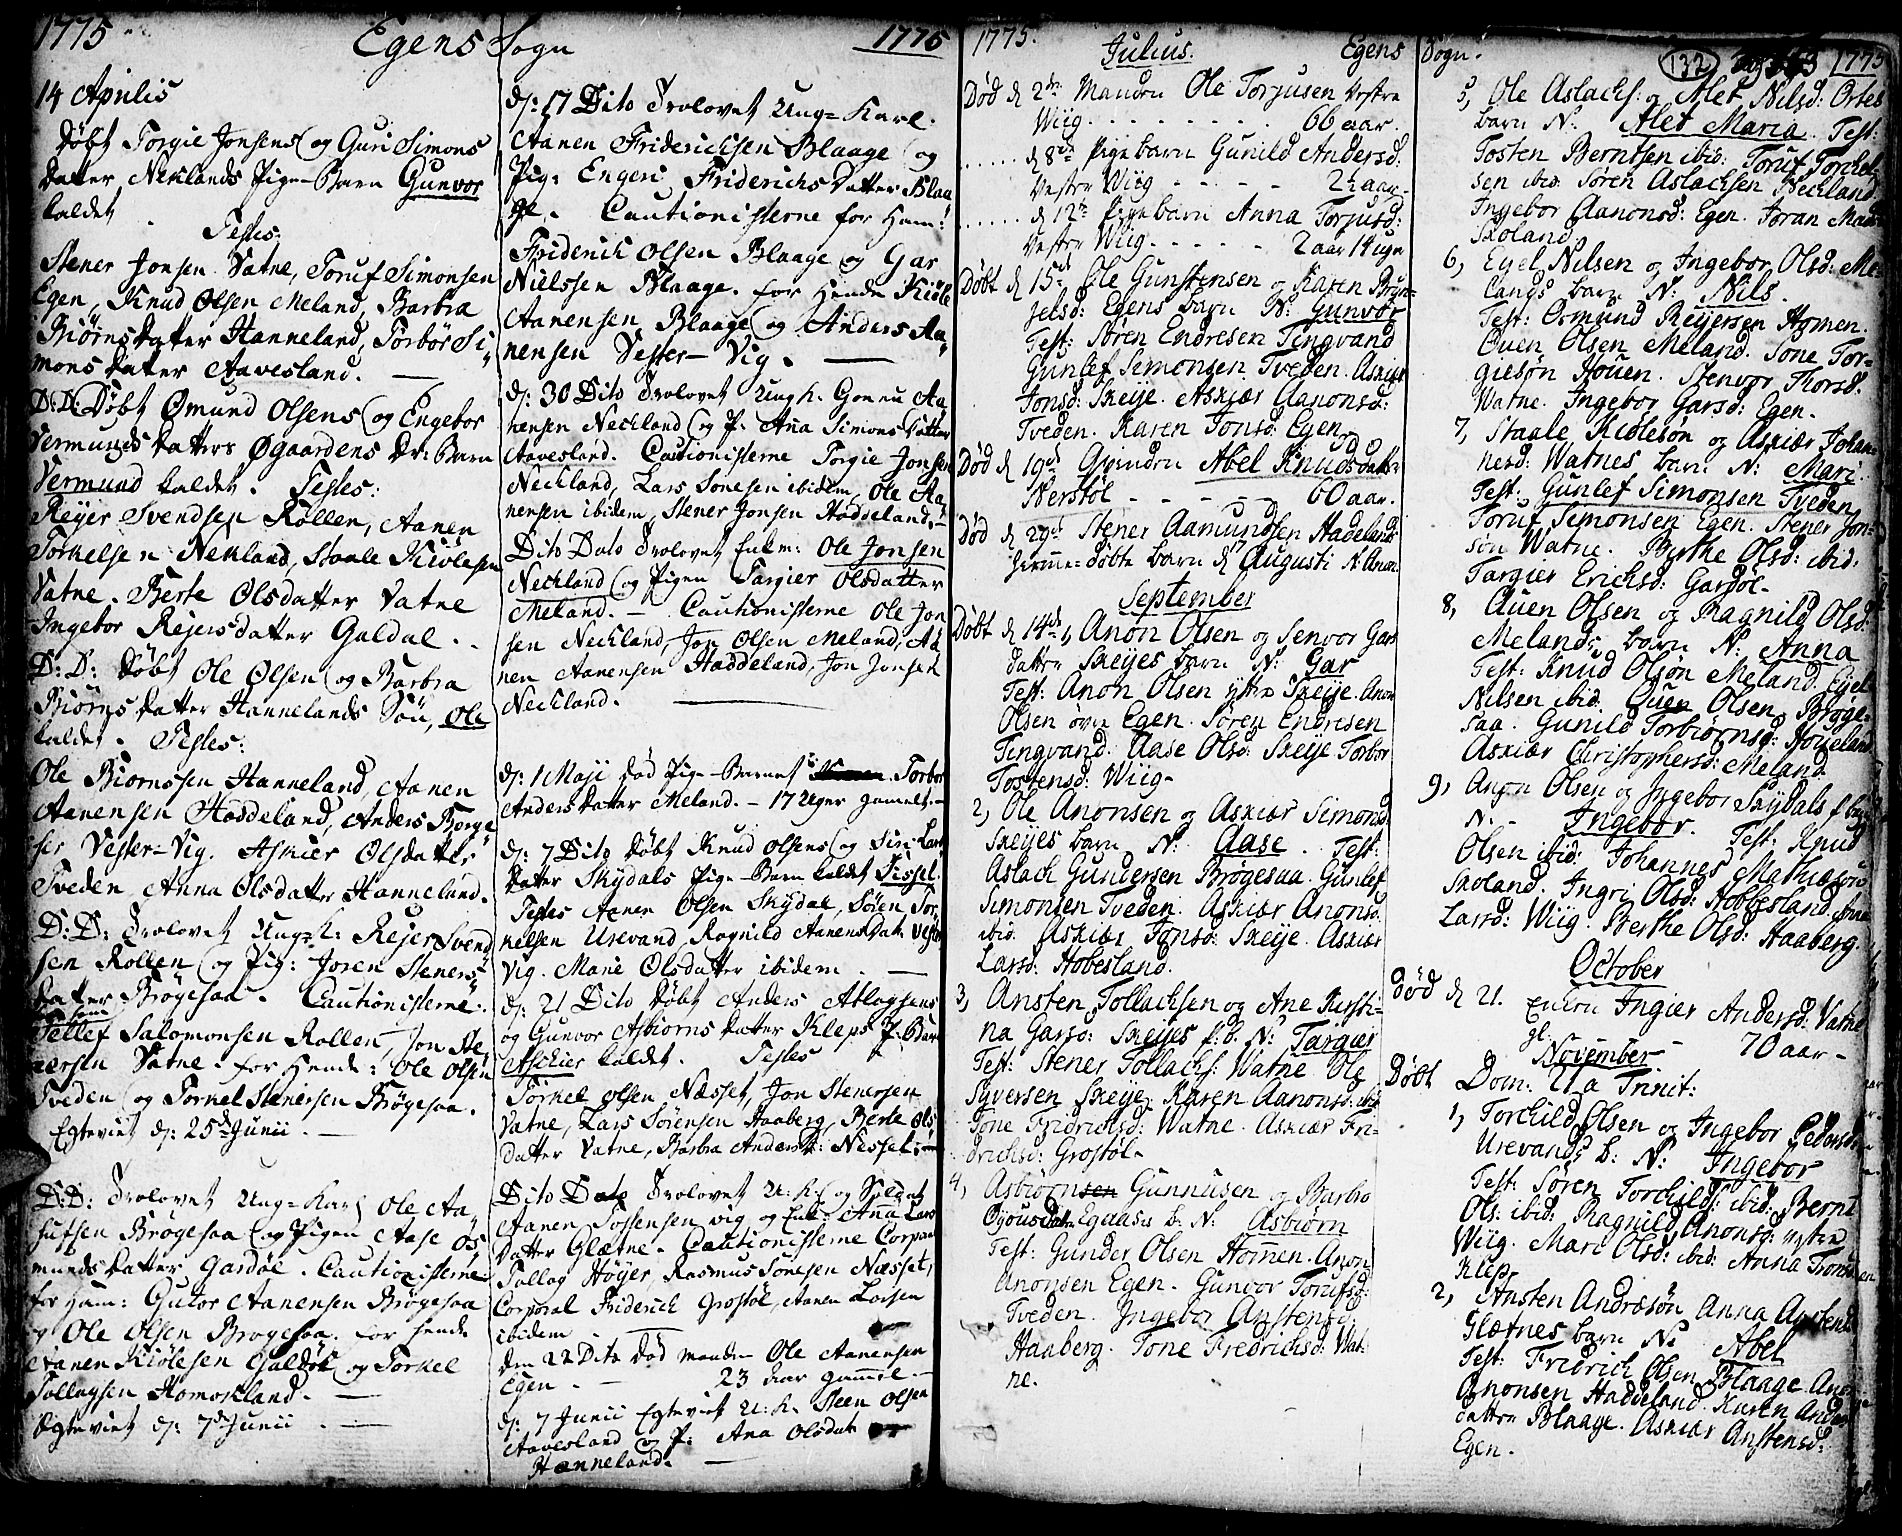 1775 Egens Sogn 1775
14 Aprilis
Døbt Torgie Jonsens og Guri Simons
datter Neklands Pige-Barn Gunvor
kaldet.
Testes:
Stener Jonsen Vatne, Toruf Simonsen
Egen, Knud Olsen Meland, Barbra
Biørnsdatter Hanneland, Torbör Si
mons datter Aavesland. —
D: D: Døbt Ømund Olsens og Engebor
Vermunds datters Øgaardens Dr: Barn
Vermund kaldet. Testes:
Reÿer Svendsen Rollen, Aanen
Torkelsen Nekland, Staale Kiölesen
Vatne. Berte Olsdatter Vatne
Ingebor Rejersdatter Galdal.
D: D: Døbt Ole Olsen og Barbra
Biørnsdatter Hannelands Sön, Ole
kaldet. Testes:
Ole Biornssen Hanneland, Aanen
Aanensen Haddeland, Anders Borge
sen Vester-Vig. Askier Olsdatter
Tveden, Anna Olsdatter Hanneland.
D: D: Trolovet Ung-k: Rejer Svend
sen Rollen og Pig: Joren Steners
datter Brøgesaa. Cautionisterne
for ham
Tellef Salomonsen Rollen, Jon Ste
nersen Vatne. for Hende: Ole Olsen
Tveden og Torkel Stenersen Brøgesaa.
Egteviet d: 25de Junii. —
D: D: Trolovet Ung-Karl Ole Aa
sulfsen Brøgesaa og Pigen Aase Os
munds datter Gardøl. Cautionisterne
for Ham: Gutor Aanensen Brøgesaa
og Ole Olsen Brøgesaa. for hende
Aanen Kiölesen Galdöl og Torkel
Tollagsen Homokland. —
Egteviet d: 7de Junii —
d: 17 Dito Trolovet Ung-Karl.
Aanen Friderichsen Blaage og
Pig: Engeri Friderichs datter Blaa
ge. Cautionisterne for Ham:
Friderich Olsen Blaage og Gar
Nielssen Blaage. for Hende Kiöle
Aanensen Blaage og Anders Aa
nensen Vester-Vig. —
d: 30 Dito Trolovet Ung k. Gonnu Aa
nensen Neckland og P: Ana Simons datter
Aavesland. Cautionisterne Torgie Jonsen
Neckland, Lars Sonesen ibidem, Ole Aa
nensen ibidem, Stener Jonsen Haddeland.
Dito Dato Trolovet Enkm: Ole Jonsen
Neckland og Pigen Targier Olsdatter
Meland. — Cautionisterne Ole Jon
sen Neckland, Jon Olsen Meland, Aa
nen Aanensen Haddeland, Jon Jonsen
Neckland. —
d: 1 Maji død Pige-Barnet Torbor
Anders datter Meland. — 17 Uger gammel. —
d: 7 Dito døbt Knud Olsens og Siri Lars
datter Skÿdals Pige-Barn kaldet Sissel.
Testes Aanen Olsen Skÿdal, Sören Tor
kelsen Urevand, Ragnild Aanensdatt: Vester
Vig. Marie Olsdatter ibidem. —
d: 21 Dito Døbt Anders Atlagsens
og Gunvor Asbiorns datter Kleps P: Barn
Aschier kaldet. Testes
Törkel Olsen Næsset, Jon Stenersen
Vatne, Lars Sörensen Haaberg, Berte Ols
datter Vatne, Barbra Andersd: Nesset. —
Dito Dato Trolovet U: K: og Soldat
Aanen Tossensen vig og Enk: Ana Lars
datter Glætne. Cautionisterne Corporal
Tollag Höyer, Rasmus Sonesen Næsset,
Corporal Friderich Grostöl, Aanen Larsen
ibidem
Den 22 Dito død Manden Ole Aanensen
Egen. — 23 Aar gammel. —
d: 7 Junii Egteviet U: K. Steen Olsen
Aavesland og P: Ana Olsdat
Hanneland. —
1775. Julius. Egens Sogn. 132 1775
Død d 2den Manden Ole Torjusen Vestre
Wiig - - - 66 aar.
d 8de Pigebarn Gunild Andersd:
Vestre Wiig - - - 2½ aar.
d 12te Pigebarn Anna Torjusd:
Vestre Wiig - - - 2 aar 14 ugr
Døbt d 15de Ole Gunstensen og Karen Bryn-
jelsd: Egens barn N: Gunvor
Test: Søren Endresen Tingvand
Gunlef Simonsen Tveden. Askier
Jonsd: Skeije. Askiær Aanonsd:
Tveden. Karen Jonsd: Egen
Død d 19de Qvinden Abel Knudsdatter
Nerstøl - - - 60 aar.
Død d 29de Stener Aamundsen Hadelands
hjemme-døbte barn d 17 Augusti N: Anon.
September
Døbt d 14de 1, Anon Olsen og Senvor Gars
datter Skeijes barn N: Gar
Test: Anon Olsen yttre Skeije. Anon
Olsen øvre Egen. Søren Endresen
Tingvand. Aase Olsd: Skeije Torbor
Tostensd: Wiig.
2, Ole Anonsen og Askiær Simonsd.
Skeijes barn N: Aase. Test:
Aslach Gundersen Brøgesaa. Gunlef
Simonsen Tveden. Askiær Anonsd:
ibid. Askiær Jonsd: Skeije. Askiær
Larsd: Hobesland.
3, Ansten Tollachsen og Ane Kirsti-
na Garsd: Skeijes p: b. N: Targier
Test: Stener Tollachs: Watne Ole
Syversen Skeije. Karen Aanonsd: ibid
Tone Fridrichsd: Watne. Askiær Fri-
drichsd: Grostøl.
4, Asbiørnsen Gunnusen og Barbro
Egaases b: N: Asbiørn
Test: Gunder Olsen Homen. Anon
Anonsen Egen. Gunvor Torufsd:
Tveden. Ingebor Anstensd:
Haaberg. Tone Fredrichsd: Wat-
ne.
5, Ole Aslachs: og Alet Nilsd: Ortes
barn N: Alet Maria. Test:
Tosten Berntsen ibid: Toruf Torchel-
sen ibid. Søren Aslachsen Neckland
Ingebor Aanonsd: Egen. Joran
Skoland
6, Eyel Nilsen og Ingebor Olsd: Me-
lands barn N: Nils.
Test: Osmund Reijersen Homen.
Ouen Olsen Meland. Sone Tor-
giesøn Houen. Stenvor Thorsd:
Watne. Ingebor Garsd: Egen.
7, Staale Kiølesøn og Askiær Johan-
nesd: Watnes barn N: Mari.
Test: Gunlef Simonsen Tveden
Toruf Simonsen Egen. Stener Jon-
søn Watne. Berthe Olsd: ibid:
Targier Erichsd: Gardøl.
8, Auen Olsen og Ragnild Olsd:
Melands barn N: Anna
Test: Knud Olsøn Meland. Eyel
Nilsen ibid. Ouen Olsen Brøge-
saa. Gunild Torbiørnsd: Houeland
Askiær Christophersd: Meland
9, Anon Olsen og Ingebor Skydals p: barn
N. - Ingebor. Test: Knud
Olsen ibid: Johannes Mathiesøn
Skoland. Ingri Olsd: Hobbesland. Ane
Larsd: Wiig. Berthe Olsd: Haaberg.
October
Død d 21. Enken Ingier Andersd: Vatne
gl: - 70 aar -
November
Døbt Dom: 21 a Trinit:
1, Torchild Olsen og Ingebor Pedersd:
Urevands b: N: Ingebor
Test: Søren Torchilds: ibid: Bernt
Ols: ibid: Ragnild Anonsd: Vestre
Wiig. Mari Olsd: ibid: Anna Tronsd:
Klep.
2, Ansten Andræsøn Anna Anstensd:
Glætnes barn N: Abel
Test: Fridrich Olsen Blaage. Anon
Anonsen Haddeland. Karen Anders
datter Blaage. Askiær Anstensd:
Egen.